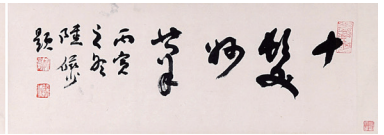 十髮妙筆
丙寅
之冬
陸儼少
題